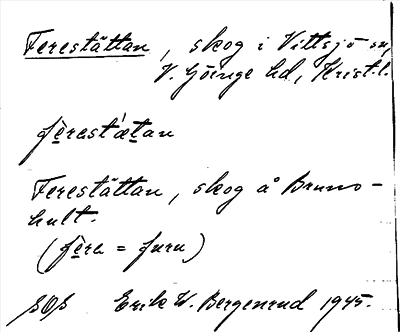 Ferestättan, skog i Vittsjö sn,
V. Göinge hd, Krist.l.
fèrestǽtan
Ferestättan, skog å Bruno-
hult.
(fèra = furu)
SOS Erik W. Bergenrud 1945.